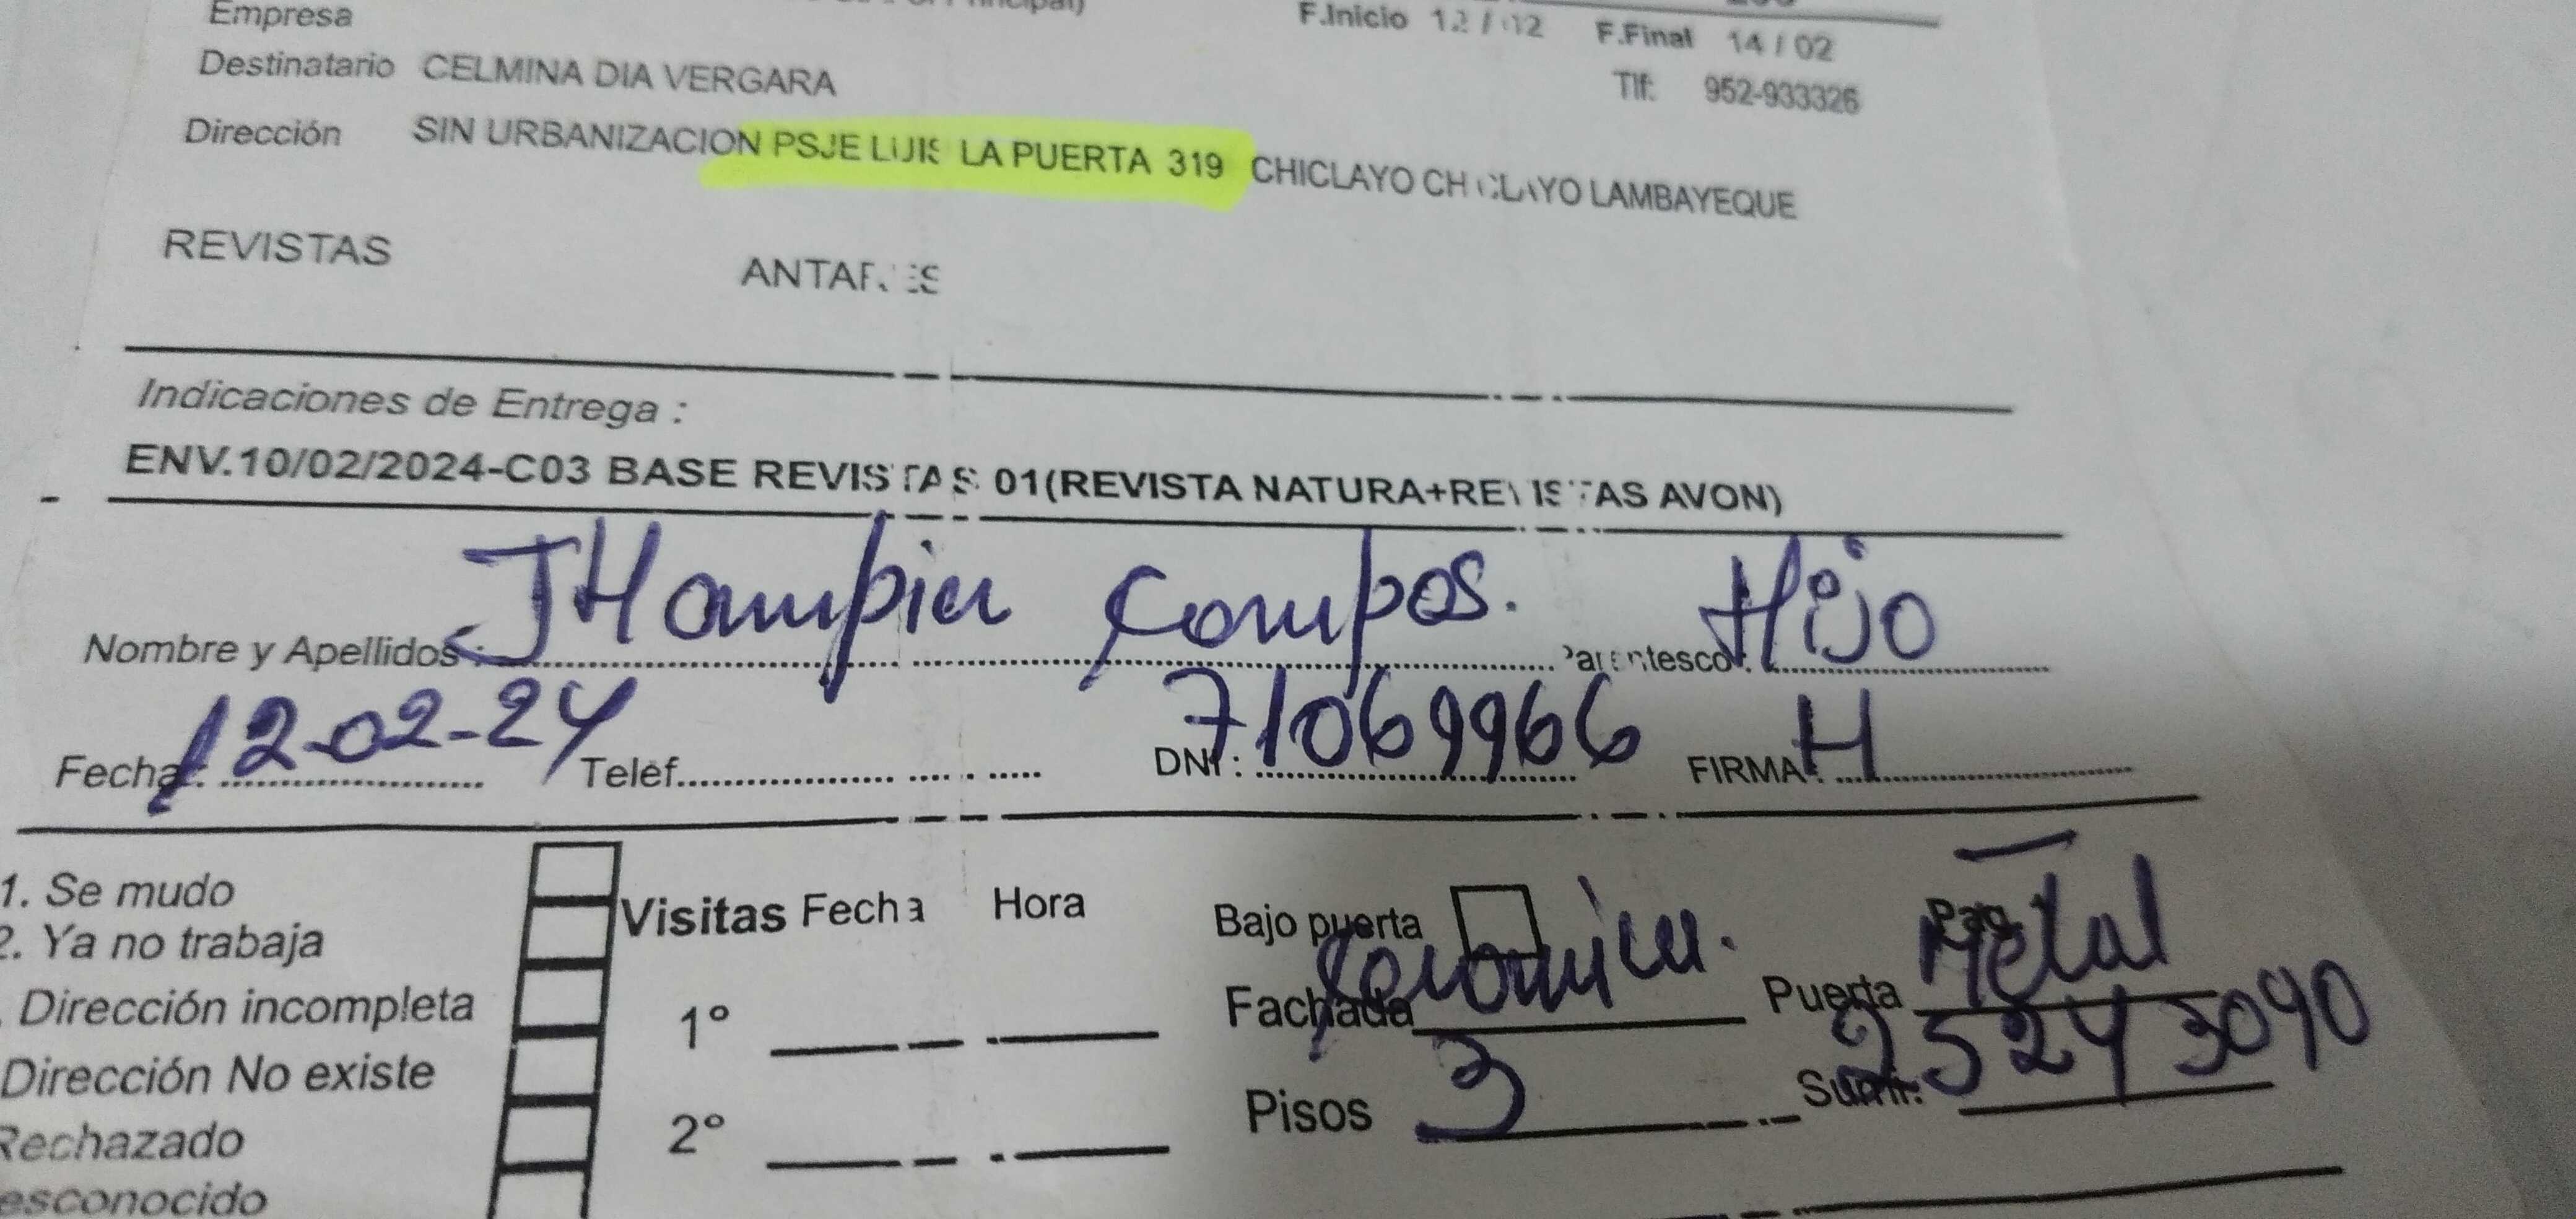 Empresa
F.Inicio 12/02 F.Final 14/02
Destinatario CELMINA DIA VERGARA
Tlf: 952-933326
Dirección SIN URBANIZACION PSJE LUIS LA PUERTA 319 CHICLAYO CHICLAYO LAMBAYEQUE
REVISTAS ANTARES
Indicaciones de Entrega :
ENV.10/02/2024-C03 BASE REVISTAS 01(REVISTA NATURA+REVISTAS AVON)
Nombre y Apellidos: JHampier Campos. Parentesco: Hijo
Fecha: 12-02-24 Telef. DNI: 71069966 FIRMA: H
1. Se mudo
2. Ya no trabaja
Dirección incompleta
Dirección No existe
Rechazado
esconocido
Visitas Fecha Hora
1°
2°
Bajo puerta
Fachada Puerta Metal
Pisos 3 Sumr. 25243090